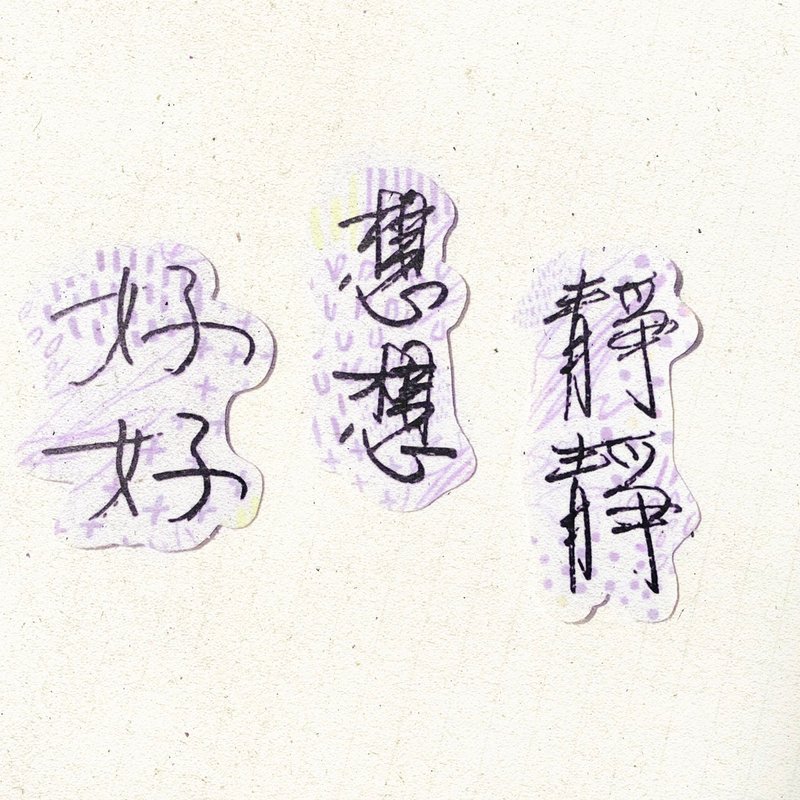 好好
想想
靜靜